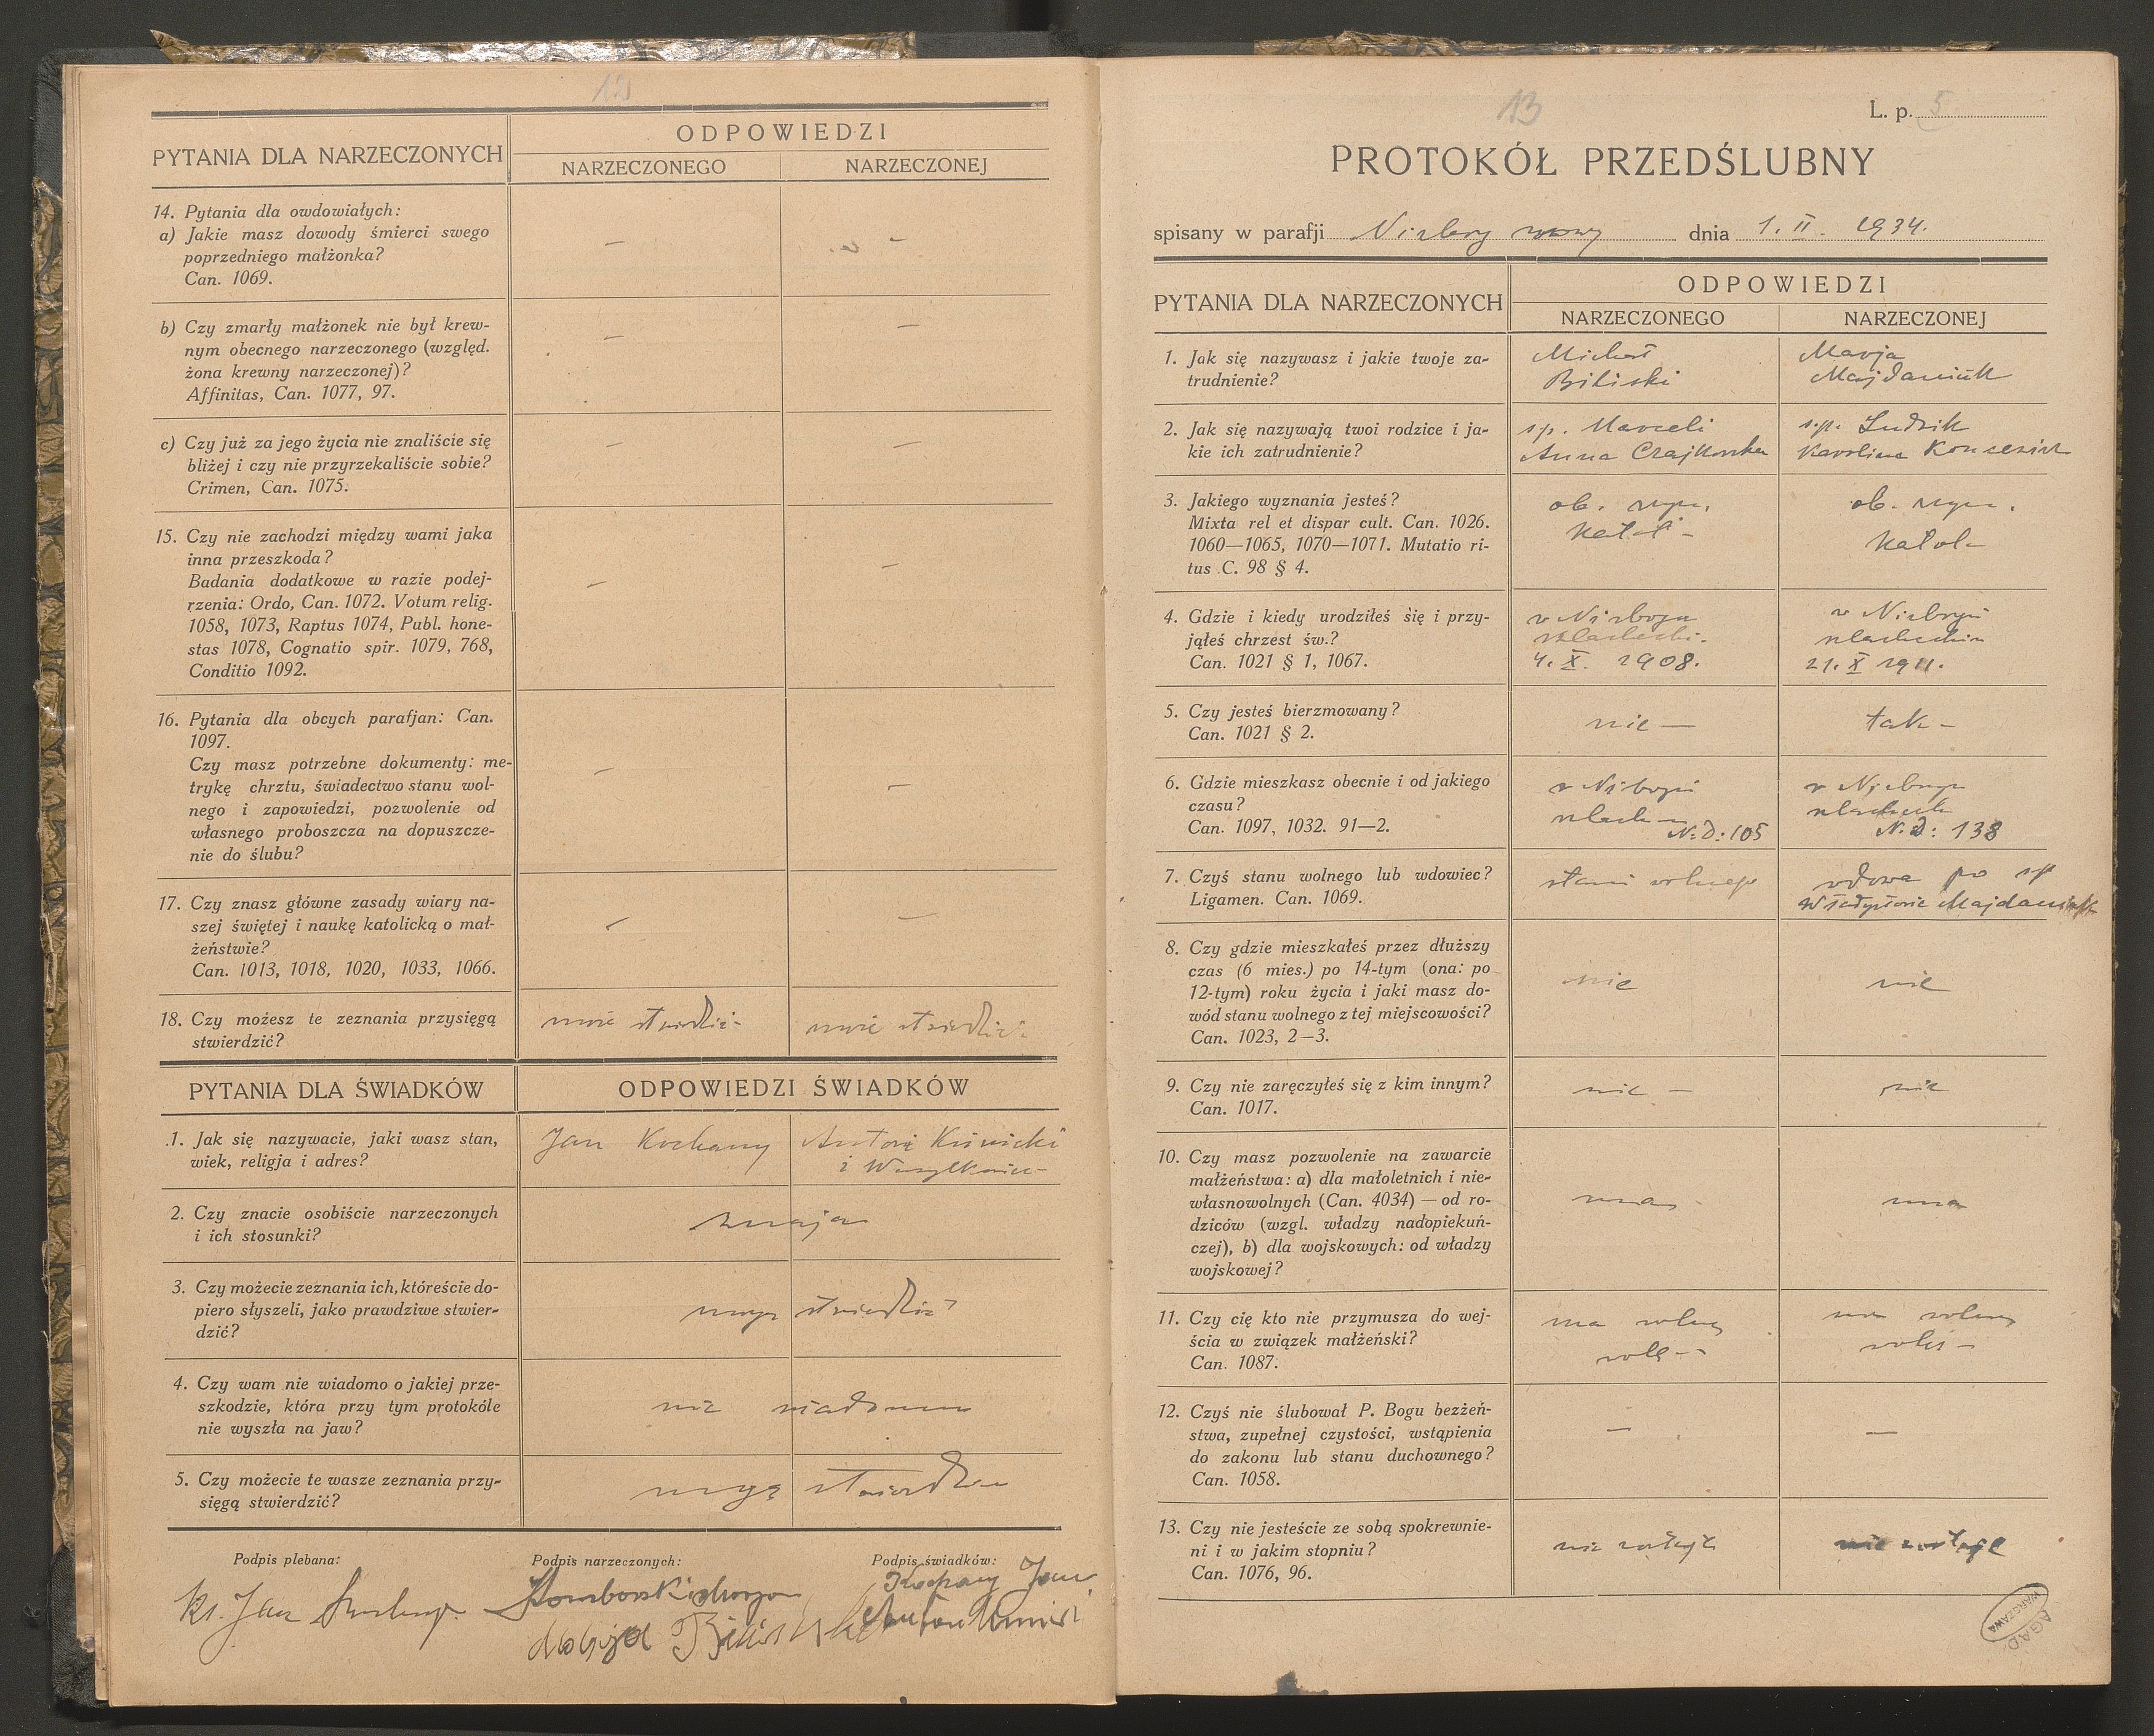 12
PYTANIA DLA NARZECZONYCH
ODPOWIEDZI
NARZECZONEGO
NARZECZONEJ
14. Pytania dla owdowiałych:
a) Jakie masz dowody śmierci swego
poprzedniego małżonka?
Can. 1069.
–
–
b) Czy zmarły małżonek nie był krew-
nym obecnego narzeczonego (względ.
żona krewny narzeczonej)?
Affinitas, Can. 1077, 97.
–
–
c) Czy już za jego życia nie znaliście się
bliżej i czy nie przyrzekaliście sobie?
Crimen, Can. 1075.
–
–
15. Czy nie zachodzi między wami jaka
inna przeszkoda?
Badania dodatkowe w razie podej-
rzenia: Ordo, Can. 1072. Votum relig.
1058, 1073, Raptus 1074, Publ. hone-
stas 1078, Cognatio spir. 1079, 768,
Conditio 1092.
–
–
16. Pytania dla obcych parafjan: Can.
1097.
Czy masz potrzebne dokumenty: me-
trykę chrztu, świadectwo stanu wol-
nego i zapowiedzi, pozwolenie od
własnego proboszcza na dopuszcze-
nie do ślubu?
–
–
17. Czy znasz główne zasady wiary na-
szej świętej i naukę katolicką o mał-
żeństwie?
Can. 1013, 1018, 1020, 1033, 1066.
–
–
18. Czy możesz te zeznania przysięgą
stwierdzić?
może stwierdzić
może stwierdzić
PYTANIA DLA ŚWIADKÓW
ODPOWIEDZI ŚWIADKÓW
1. Jak się nazywacie, jaki wasz stan,
wiek, religja i adres?
Jan Kochany
Antoni
i
2. Czy znacie osobiście narzeczonych
i ich stosunki?
znają
3. Czy możecie zeznania ich, któreście do-
piero słyszeli, jako prawdziwe stwier-
dzić?
mogą stwierdzić
4. Czy wam nie wiadomo o jakiej prze-
szkodzie, która przy tym protokóle
nie wyszła na jaw?
nie wiadomo
5. Czy możecie te wasze zeznania przy-
sięgą stwierdzić?
mogą stwierdzić
Podpis plebana:
Podpis narzeczonych:
Podpis świadków:
Ks. Jan
Kochany Jan
13
L. p. 5
PROTOKÓŁ PRZEDŚLUBNY
spisany w parafji Nizbory nowy dnia 1. II. 1934.
PYTANIA DLA NARZECZONYCH
ODPOWIEDZI
NARZECZONEGO
NARZECZONEJ
1. Jak się nazywasz i jakie twoje za-
trudnienie?
Michał
Biliski
Marja
Majdaniuk
2. Jak się nazywają twoi rodzice i ja-
kie ich zatrudnienie?
śp. Marceli
Anna Czajkowska
śp. Ludwik
Karolina
3. Jakiego wyznania jesteś?
Mixta rel et dispar cult. Can. 1026.
1060—1065, 1070—1071. Mutatio ri-
tus C. 98 § 4.
ob. rzym.
katol –
ob. rzym.
katol –
4. Gdzie i kiedy urodziłeś się i przy-
jąłeś chrzest św.?
Can. 1021 § 1, 1067.
w
4. X. 1908.
w
21. X 1911.
5. Czy jesteś bierzmowany?
Can. 1021 § 2.
nie –
tak –
6. Gdzie mieszkasz obecnie i od jakiego
czasu?
Can. 1097, 1032. 91—2.
w
szlach –
N. D: 105
w
N. D: 138
7. Czyś stanu wolnego lub wdowiec?
Ligamen. Can. 1069.
stanu wolnego
wdowa po śp
Władysławie Majdaniuk
8. Czy gdzie mieszkałeś przez dłuższy
czas (6 mies.) po 14-tym (ona: po
12-tym) roku życia i jaki masz do-
wód stanu wolnego z tej miejscowości?
Can. 1023, 2—3.
nie
nie
9. Czy nie zaręczyłeś się z kim innym?
Can. 1017.
nie –
nie
10. Czy masz pozwolenie na zawarcie
małżeństwa: a) dla małoletnich i nie-
własnowolnych (Can. 4034) — od ro-
dziców (wzgl. władzy nadopiekuń-
czej), b) dla wojskowych: od władzy
wojskowej?
ma
ma
11. Czy cię kto nie przymusza do wej-
ścia w związek małżeński?
Can. 1087.
ma wolną
wolę –
ma wolną
wolę –
12. Czyś nie ślubował P. Bogu bezżeń-
stwa, zupełnej czystości, wstąpienia
do zakonu lub stanu duchownego?
Can. 1058.
–
–
13. Czy nie jesteście ze sobą spokrewnie-
ni i w jakim stopniu?
Can. 1076, 96.
nie
nie
AGAD
WARSZAWA